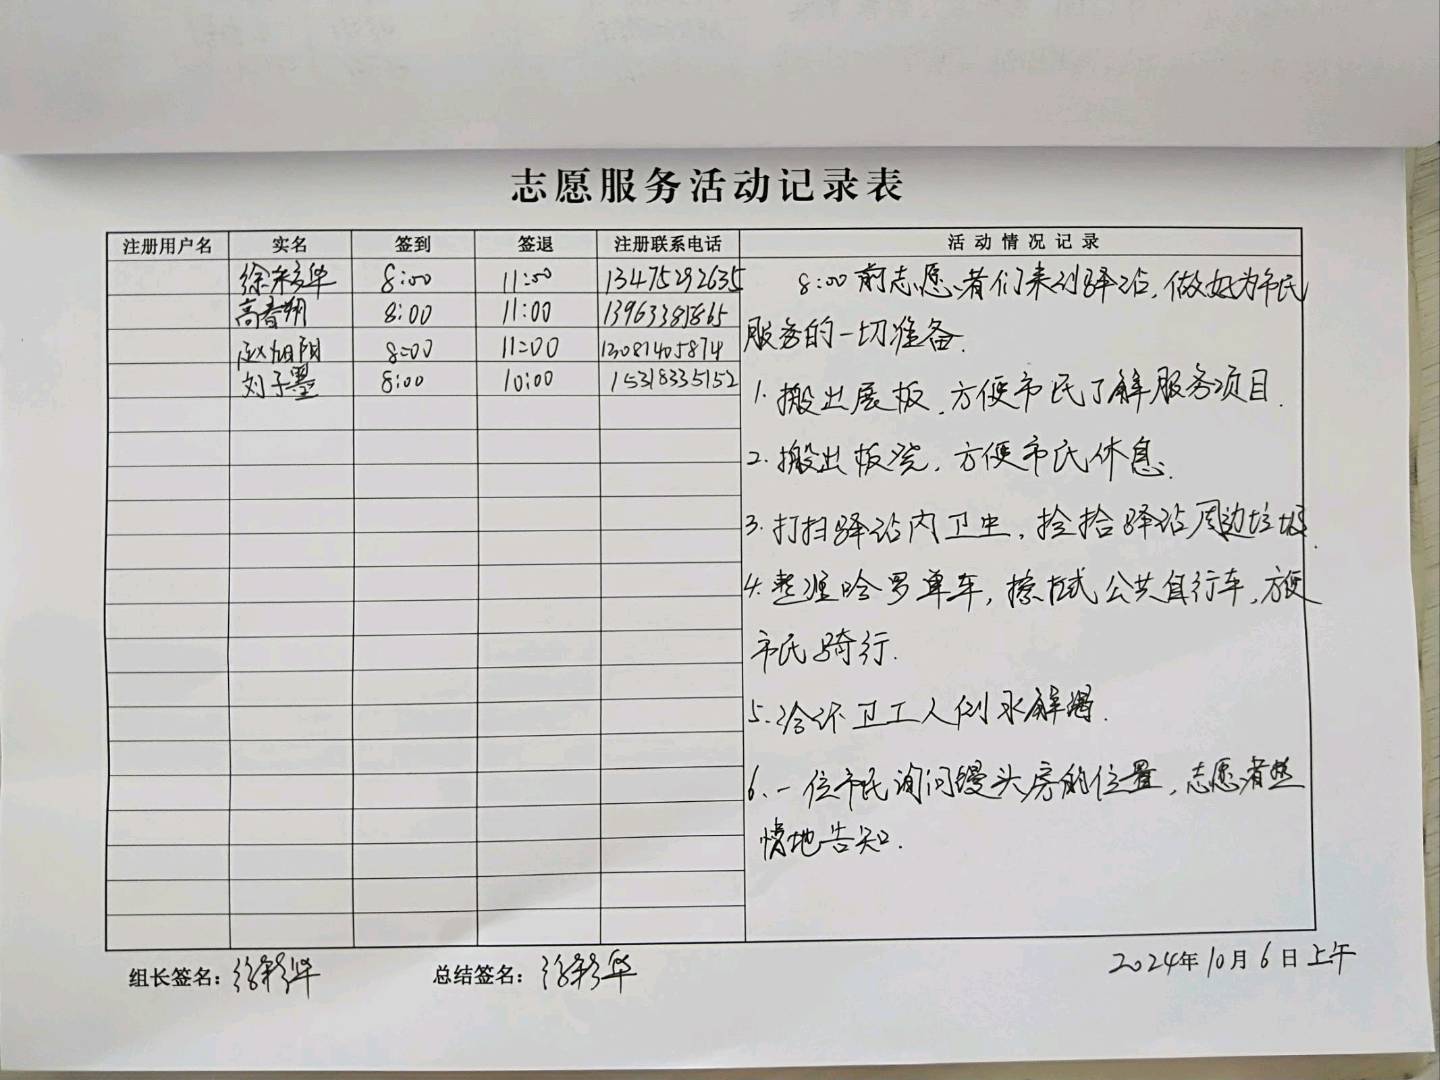 志愿服务活动记录表
注册用户名 实名 签到 签退 注册联系电话 活动情况记录
徐彩华 8:00 11:00 13475292635
高春朔 8:00 11:00 13963381865
赵旭阳 8:00 11:00 13081405874
刘子墨 8:00 10:00 15318335152
8:00前志愿者们来到驿站,做好为市民
服务的一切准备.
1.搬出展板,方便市民了解服务项目.
2.搬出板凳,方便市民休息.
3.打扫驿站内卫生,捡拾驿站周边垃圾.
4.整理哈罗单车,擦拭公共自行车,方便
市民骑行.
5.给环卫工人倒水解渴.
6.一位市民询问馒头房的位置,志愿者热
情地告知.
组长签名:徐彩华 总结签名:徐彩华 2024年10月6日上午